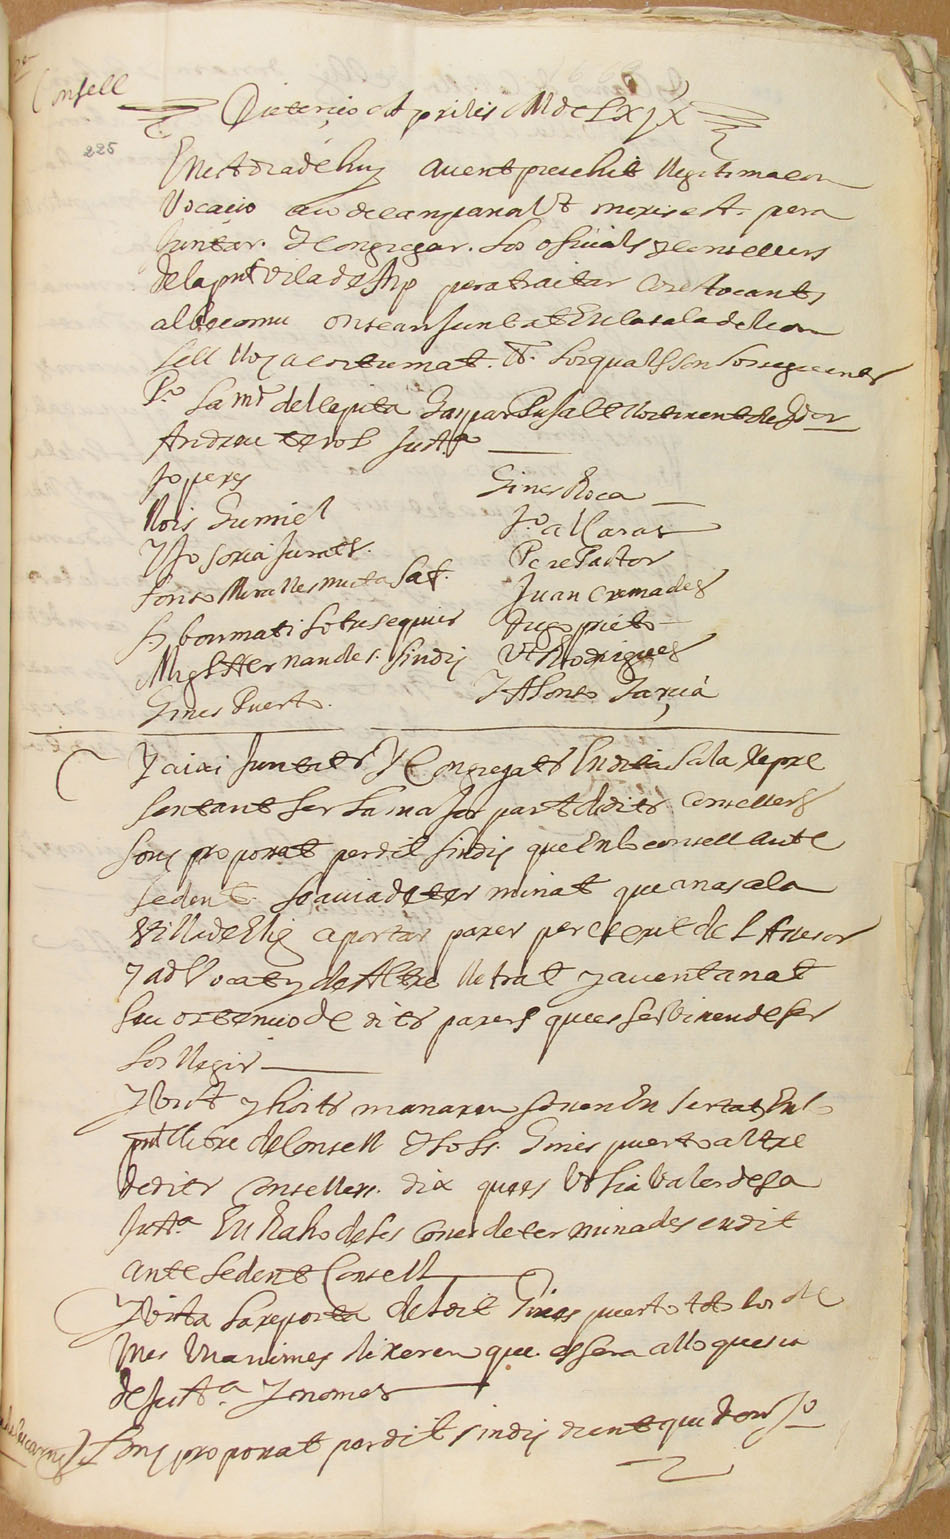 Consell
Die tercio Aprilis MdcLxjx
225
En est dia de huy avent presehit llegitima con
vocacio aio de campana Vt moris est pera
Juntar y Congregar los oficials y consellers
de la pnt vila de Asp pera tractar coses tocants
al be comu on sean Juntat En la sala del con
sell lloj acostumat. Et. los quals son los seguents
Po. la mt. del lapita Gaspar Pusalt lloctinent de
Andreu terol Justa.
Jo peres
llois Gumiel
y Jo soria Jurats.
fonso Miralles mustasaf.
bonmati sotsequier
Migl Hernandes. sindij
Gines Puerto.
Gines Roca
Jo. alcaras
Pere Pastor
Juan Cremades
prieto
Vt Rodrigues
y Alonso Garcia
y aixi Juntats y Congregats En dita sala Repre
sentant ser la major part de dits consellers
fonj proposat per dit sindij que En lo consell ante
sedent. se avia determinat que anas a la
Villa de Elig a portar parer per escrit de l Asesor
y adVocat y de Altre lletrat y avent anat
seu obtenio de dits parers que es servixen de fer
los llegir
y Vist y hoits manaren fonen En sertats En l
pnt llibre de Consell y lo ss. Gines puerto altre
de dits consellers. dix que es Vt sia Valer de sa
Justa. En Raho de les coses determinades en dit
ante sedent Consell
y Vista la reposta de lo dit Gines puerto tots los de
Mes Unanimes dixeren que. es fera allo que sia
de Justa. y no mes
fonj proposat per dit sindij dient que don Jo